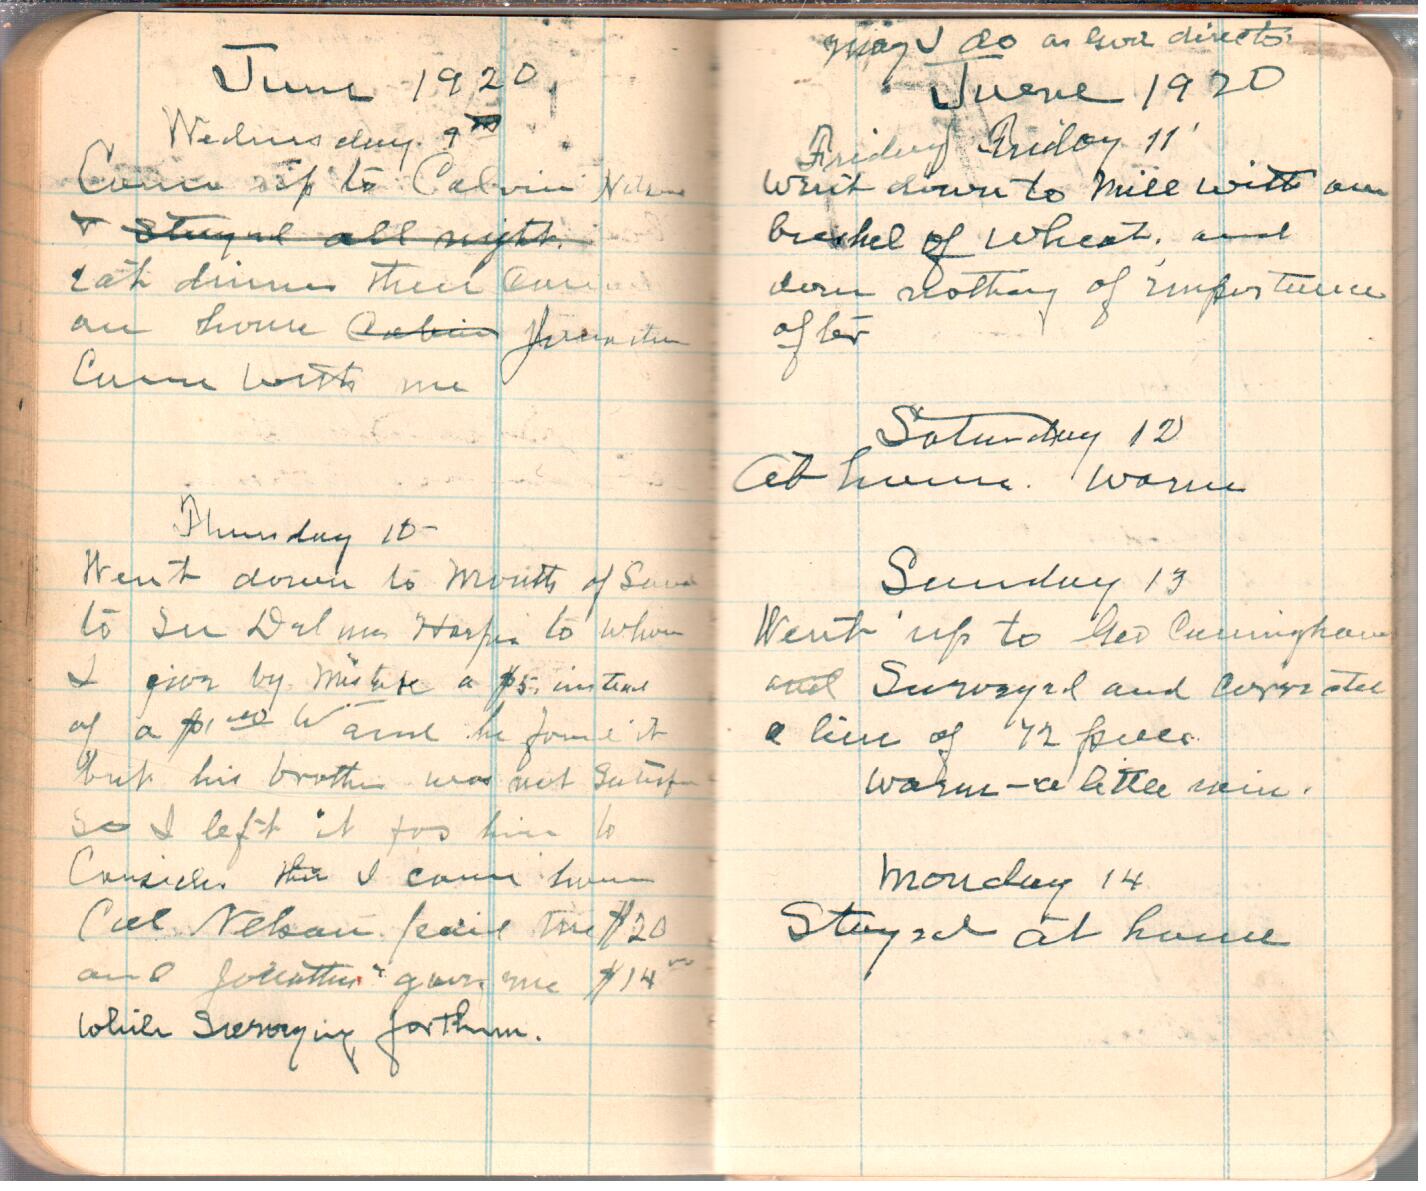 June 1920.
Wednesday 9th
Come up to Calvin Nelson
& Stayed all night.
eat dinner then Came
on home Calvin Jonathan
Came with me
Thursday 10
Went down to Mouth of
to See Delmer Harper to whom
I give by Mistake a $5. instead
of a $1.00 W and he found it
but his brother was not Satisfi
So I left it for him to
Consider. then I came home
Cal Nelson paid me $20
and Jonathan gave me $14.00
while Surveying for them.
May I do as God directs
June 1920
Friday Friday 11
Went down to Mill with one
bushel of Wheat, and
done nothing of importance
after
Saturday 12
At home. Warm
Sunday 13
Went up to Geo Cunningham
and Surveyed and corrected
a line of 72 poles
Warm - a little rain.
Monday 14
Stayed at home